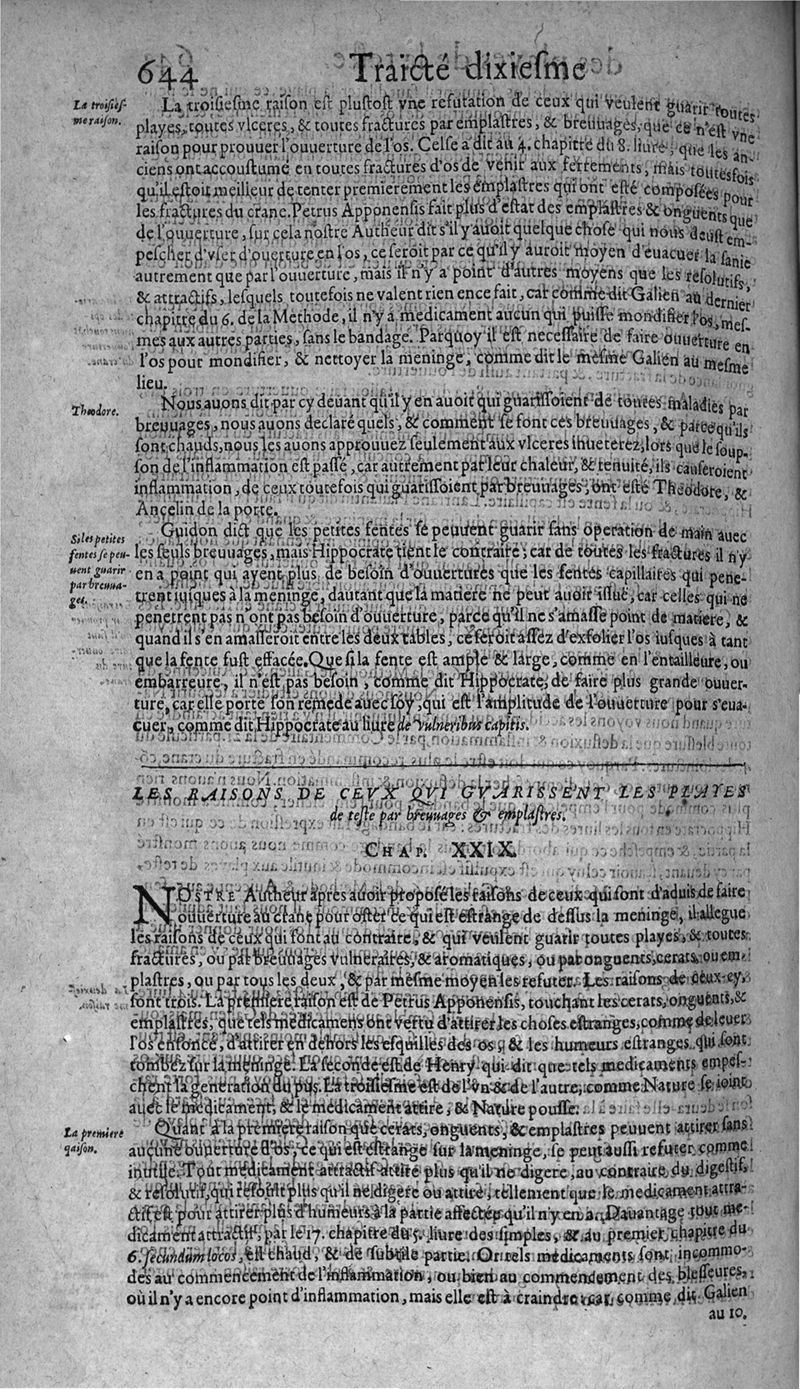 644
Traicté dixiesme
La troisies-
me raison.
La troisiesme raison est plustost vne refutation de ceux qui veulent guarir toutes
playes, toutes vlceres, & toutes fractures par emplastres, & breuuages, que ce n'est vne
raison pour prouuer l'ouuerture de l'os. Celse a dit au 4. chapitre du 8. liure, que les an-
ciens ont accoustumé en toutes fractures d'os de venir aux ferrements, mais toutesfois
qu'il estoit meilleur de tenter premierement les emplastres qui ont esté composées pour
les fractures du crane. Petrus Apponensis fait plus d'estat des emplastres & onguents que
de l'ouuerture, sur cela nostre Autheur dit s'il y auoit quelque chose qui nous deust em-
pescher d'vser d'ouuerture en l'os, ce seroit par ce qu'il y auroit moyen d'euacuer la sanie
autrement que par l'ouuerture, mais il n'y a point d'autres moyens que les resolutifs,
& attractifs, lesquels toutefois ne valent rien en ce fait, car comme dit Galien au dernier
chapitre du 6. de la Methode, il n'y a medicament aucun qui puisse mondifier l'os, mes-
mes aux autres parties, sans le bandage. Parquoy il est necessaire de faire ouuerture en
l'os pour mondifier, & nettoyer la meninge, comme dit le mesme Galien au mesme
lieu.
Theodore.
Nous auons dit par cy deuant qu'il y en auoit qui guarissoient de toutes maladies par
breuuages, nous auons declaré quels, & comment se font ces breuuages, & parce qu'ils
sont chauds, nous les auons approuuez seulement aux vlceres inueterez, lors que le soup-
son de l'inflammation est passé, car autrement par leur chaleur, & tenuité, ils causeroient
inflammation, de ceux toutefois qui guarissoient par breuuages, ont esté Theodore, &
Ancelin de la porte.
Si les petites
fentes se peu-
uent guarir
par breuua-
ges.
Guidon dict que les petites fentes se peuuent guarir sans operation de main auec
les seuls breuuages, mais Hippocrate tient le contraire; car de toutes les fractures il n'y
en a point qui ayent plus de besoin d'ouuertures que les fentes capillaires qui pene-
trent iusques à la meninge, dautant que la matiere ne peut auoir issuë, car celles qui ne
penetrent pas n'ont pas besoin d'ouuerture, parce qu'il ne s'amasse point de matiere, &
quand il s'en amasseroit entre les deux tables, ce seroit assez d'exfolier l'os iusques à tant
que la fente fust effacée. Que si la fente est ample & large, comme en l'entailleure, ou
embarreure, il n'est pas besoin, comme dit Hippocrate, de faire plus grande ouuer-
ture, car elle porte son remede auec soy, qui est l'amplitude de l'ouuerture pour s'eua-
cuer, comme dit Hippocrate au liure de vulneribus capitis.
LES RAISONS DE CEVX QVI GVARISSENT LES PLAYES
de teste par breuuages & emplastres.
CHAP. XXIX.
NOSTRE Autheur apres auoir proposé les raisons de ceux qui sont d'aduis de faire
ouuerture au crane pour oster ce qui est estrange de dessus la meninge, il allegue
les raisons de ceux qui sont au contraire, & qui veulent guarir toutes playes, & toutes
fractures, ou par breuuages vulneraires, & aromatiques, ou par onguents, cerats, ou em-
plastres, ou par tous les deux, & par mesme moyen les refuter. Les raisons de ceux-cy,
sont trois. La premiere raison est de Petrus Apponensis, touchant les cerats, onguents, &
emplastres, que tels medicamens ont vertu d'attirer les choses estranges, comme de leuer
l'os enfoncé, d'attirer en dehors les esquilles des os, & les humeurs estranges qui sont
tombez sur la meninge. La seconde est de Henry qui dit que tels medicaments empes-
chent la generation du pus. La troisiesme est de l'vn & de l'autre, comme Nature se ioint
auec le medicament, & le medicament attire, & Nature pousse.
La premiere
raison.
Quant à la premiere raison que cerats, onguents, & emplastres peuuent attirer sans
aucune ouuerture d'os, ce qui est estrange sur la meninge, se peut aussi refuter comme
inutile. Tout medicament attractif attire plus qu'il ne digere, au contraire du digestif,
& resolutif, qui resoult plus qu'il ne digere ou attire, tellement que le medicament attra-
ctif est pour attirer plus d'humeurs à la partie affectée qu'il n'y en a. Dauantage tout me-
dicament attractif, par le 17. chapitre du 5. liure des simples, & au premier chapitre du
6. secundum locos, est chaud, & de subtile partie. Or tels medicaments sont incommo-
des au commencement de l'inflammation, ou bien au commendement des blesseures,
où il n'y a encore point d'inflammation, mais elle est à craindre, car, comme dit Galien
au 10.